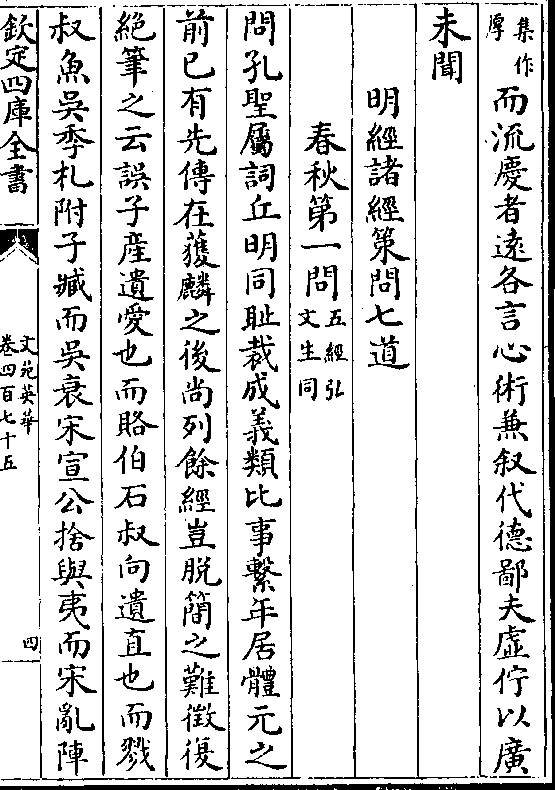 集作
厚
而流慶者遠各言心術兼叙代德鄙夫虛佇以廣
未聞
明經諸經策問七道
春秋第一問
五經弘
文生同
問孔聖屬詞丘明同恥裁成義類比事繫年居體元之
前已有先傳在獲麟之後尚列餘經豈脱簡之難徵復
絶筆之云誤子產遺愛也而賂伯石叔向遺直也而戮
叔魚吳季札附子臧而吳衰宋宣公捨與夷而宋亂陣
欽定四庫全書
文苑英華
卷四百七十五
四